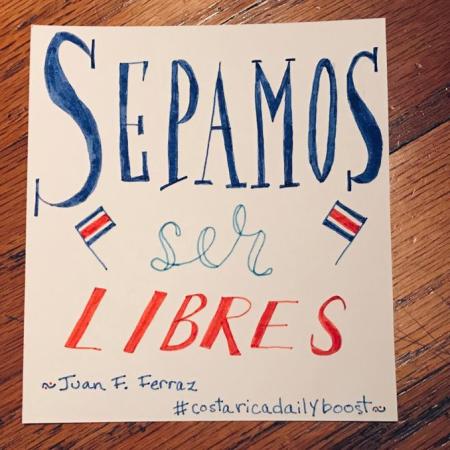 SEPAMOS
ser
LIBRES
~Juan F. Ferraz
#costaricadailyboost~